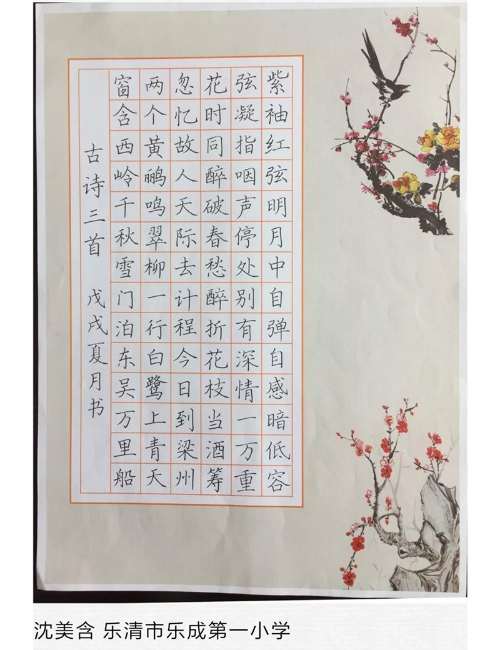 紫袖红弦明月中自弹自感暗低容
弦凝指咽声停处别有深情一万重
花时同醉破春愁醉折花枝当酒筹
忽忆故人天际去计程今日到梁州
两个黄鹂鸣翠柳一行白鹭上青天
窗含西岭千秋雪门泊东吴万里船
古诗三首 戊戌夏月书
沈美含 乐清市乐成第一小学